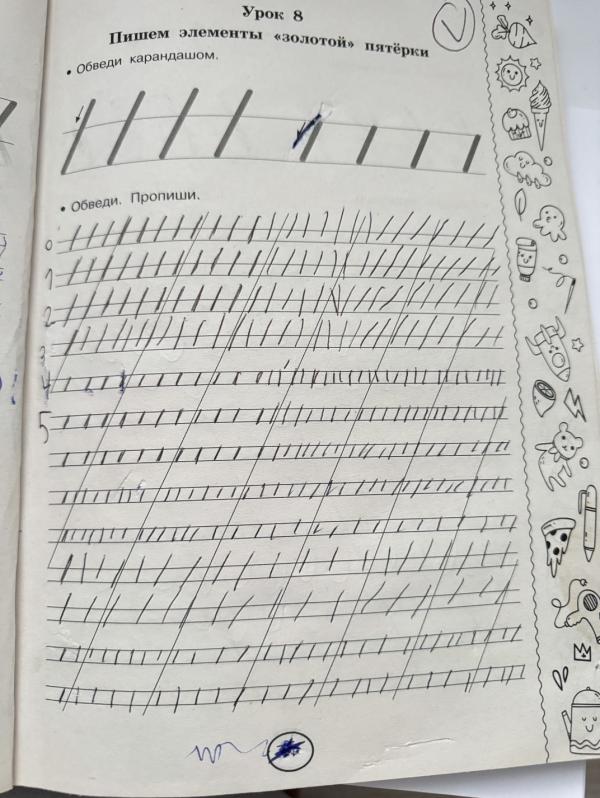 Урок 8
Пишем элементы «золотой» пятёрки
• Обведи карандашом.
• Обведи. Пропиши.
0
1
2
3
4
5